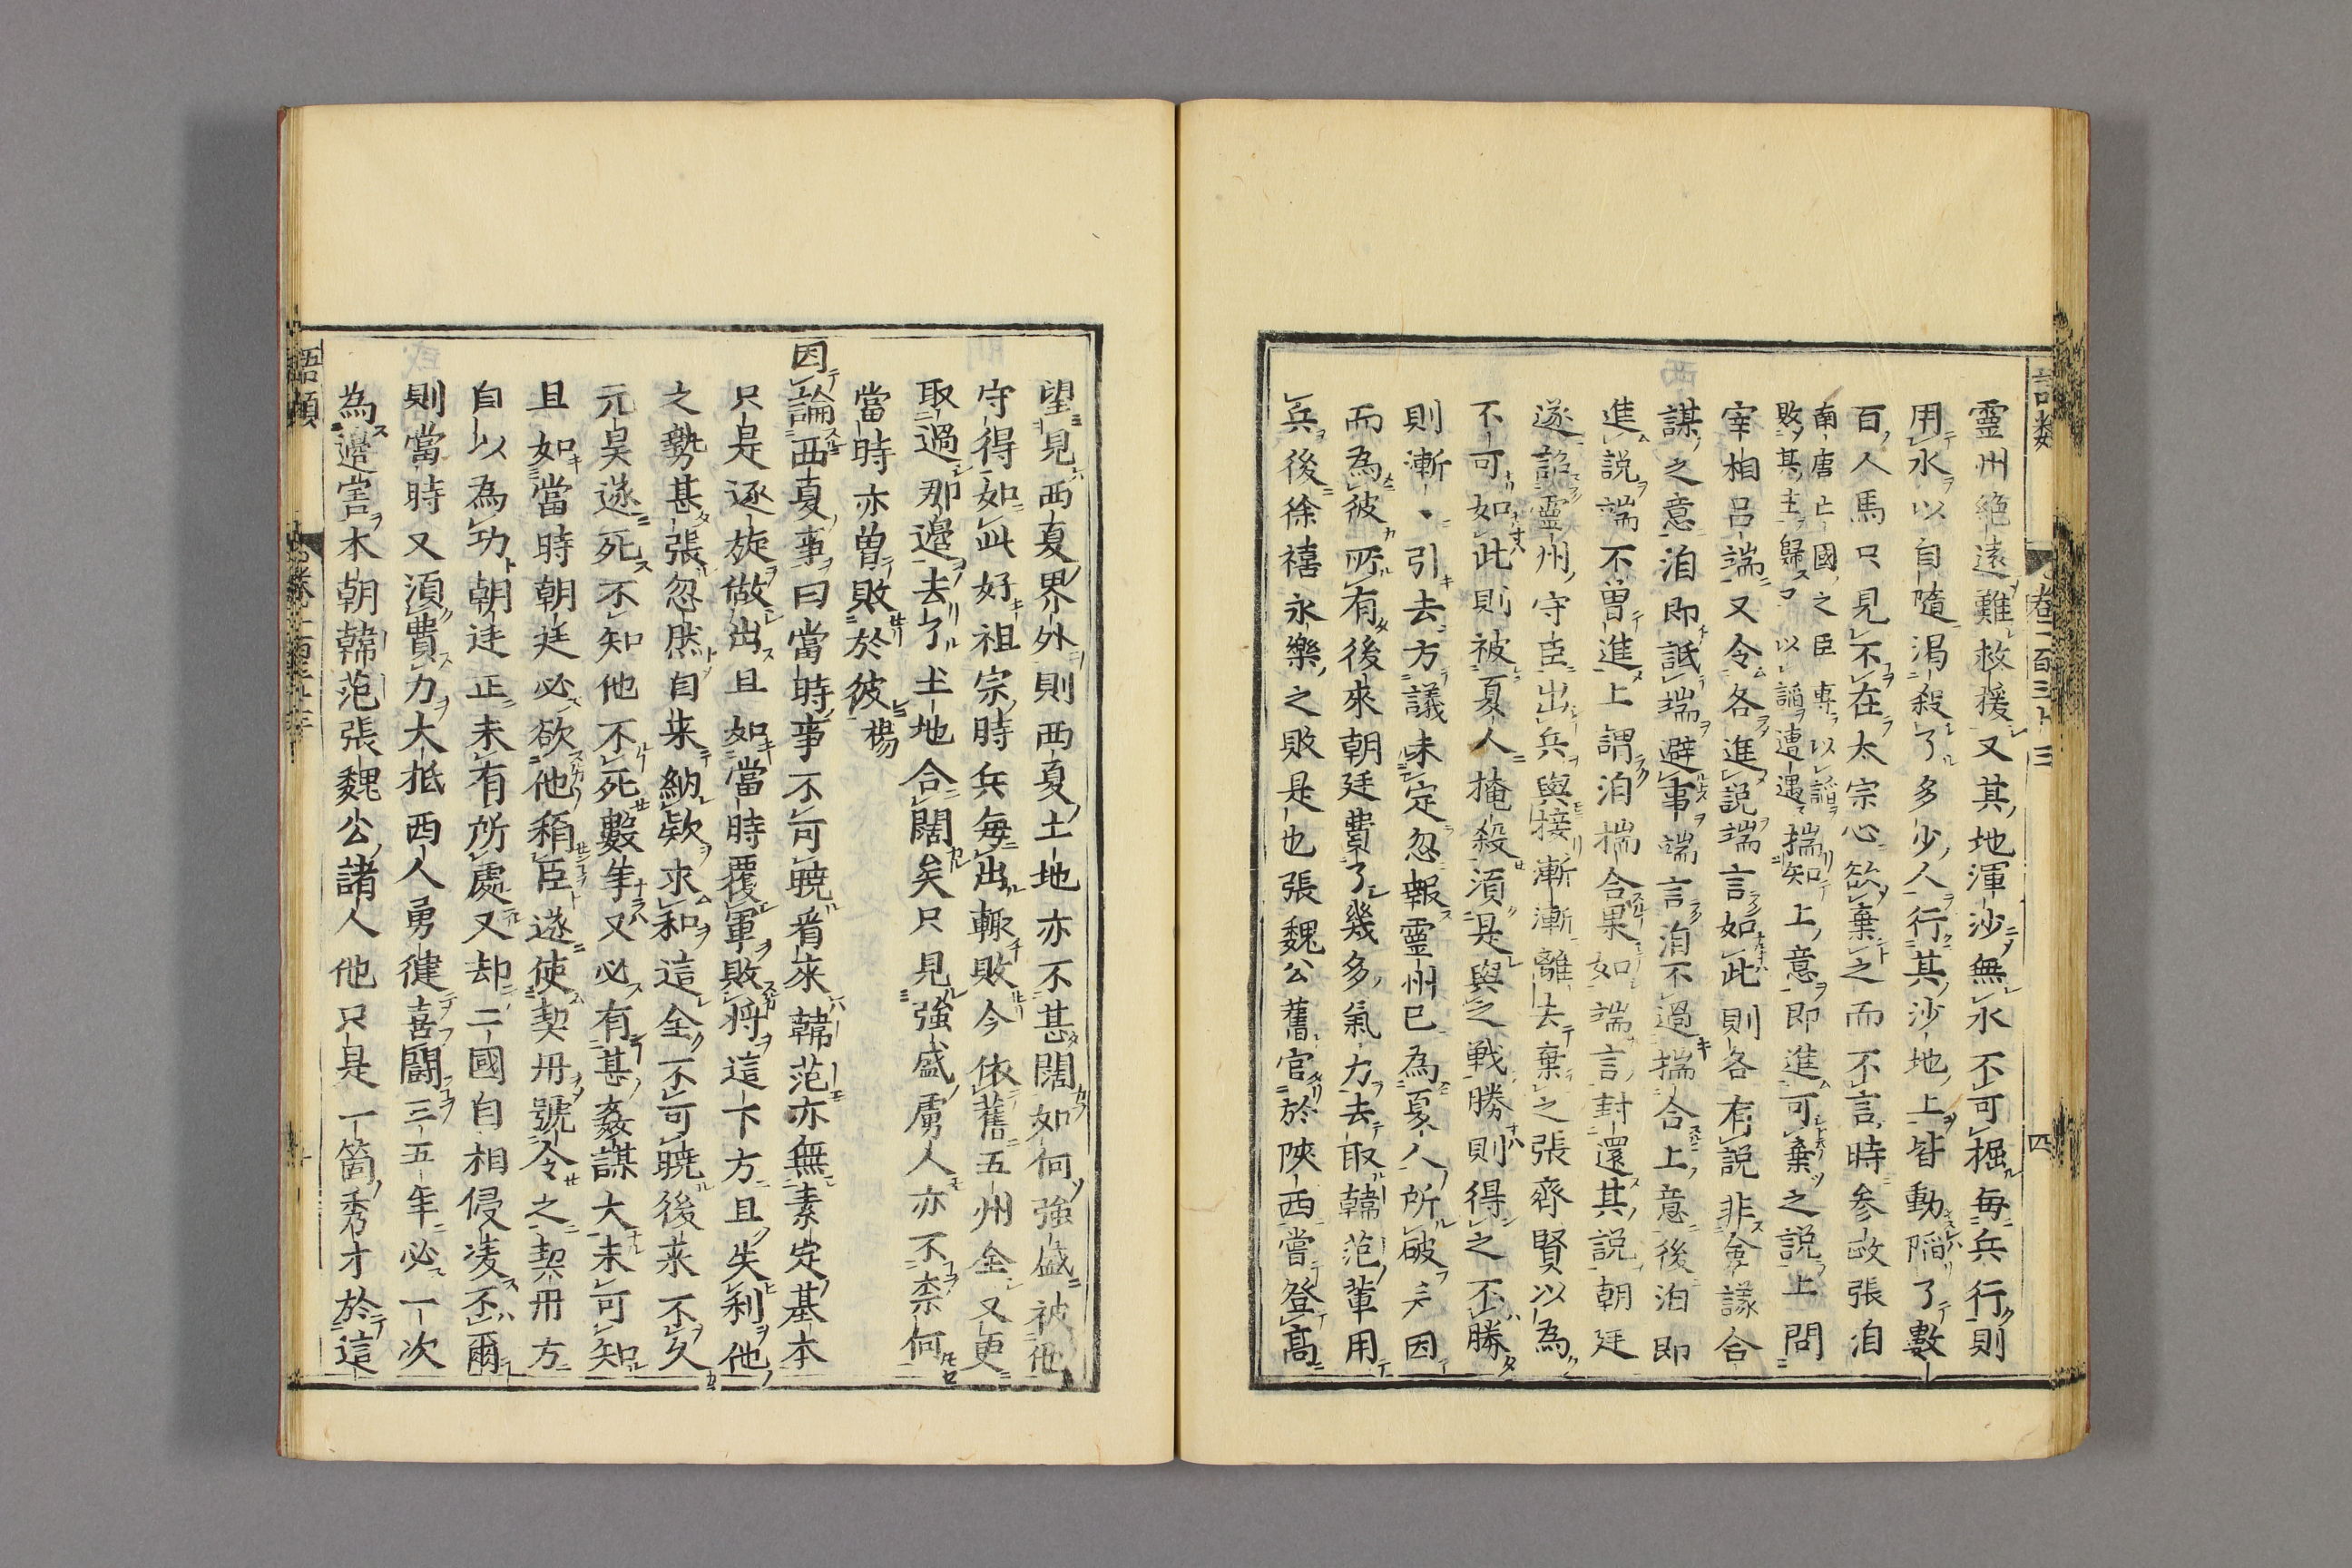 語類
卷一百三十三
四
靈州絶遠難救援又其地渾沙無水不可掘毎兵行則
用水以自隨渴殺了多少人行其沙地上皆動陷了數
百人馬只見不在太宗心欲棄之而不言時参政張洎
南唐亡國之臣專以謟
敗其主歸ス以謟遭遇
揣知上意即進可棄之説上問
宰相呂端又令各進説端言如此則各有説非僉議合
謀之意洎即詆端避事端言洎不過揣合上意後洎即
進説端不曽進上謂洎揣合果如端言封還其説朝廷
遂詔靈州守臣出兵與接漸漸離去棄之張齊賢以為
不可如此則被夏人掩殺須是與之戦勝則得之不勝
則漸〻引去方議未定忽報靈州已為夏人所破矣因
而為彼所有後來朝廷費了幾多氣力去取韓范輩用
兵後徐禧永樂之敗是也張魏公舊官於陝西嘗登髙
望見西夏界外則西夏土地亦不甚闊如何強盛被他
守得如此好祖宗時兵毎出輙敗今依舊五州全又更
取過那邉去了土地合闊矣只見強盛虜人亦不柰何
當時亦曽敗於彼楊
因論西夏事曰當時事不可曉看來韓范亦無素定基本
只是逐旋做出且如當時覆軍敗将這下方且失利他
之勢甚張忽然自来納欵求和這全不可曉後来不久
元昊遂死不知他不死數年又必有甚姦謀大未可知
且如當時朝廷必欲他稱臣遂使契丹號令之契丹方
自以為功朝廷正未有所處又却二國自相侵凌不爾
則當時又湏費力大抵西人勇健喜鬪三五年必一次
為邉害本朝韓范張魏公諸人他只是一箇秀才於這
語類